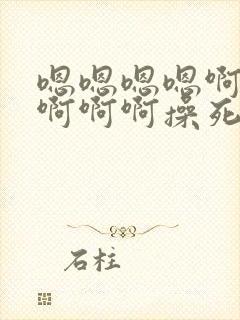 嗯嗯嗯嗯啊
啊啊啊操死
石柱